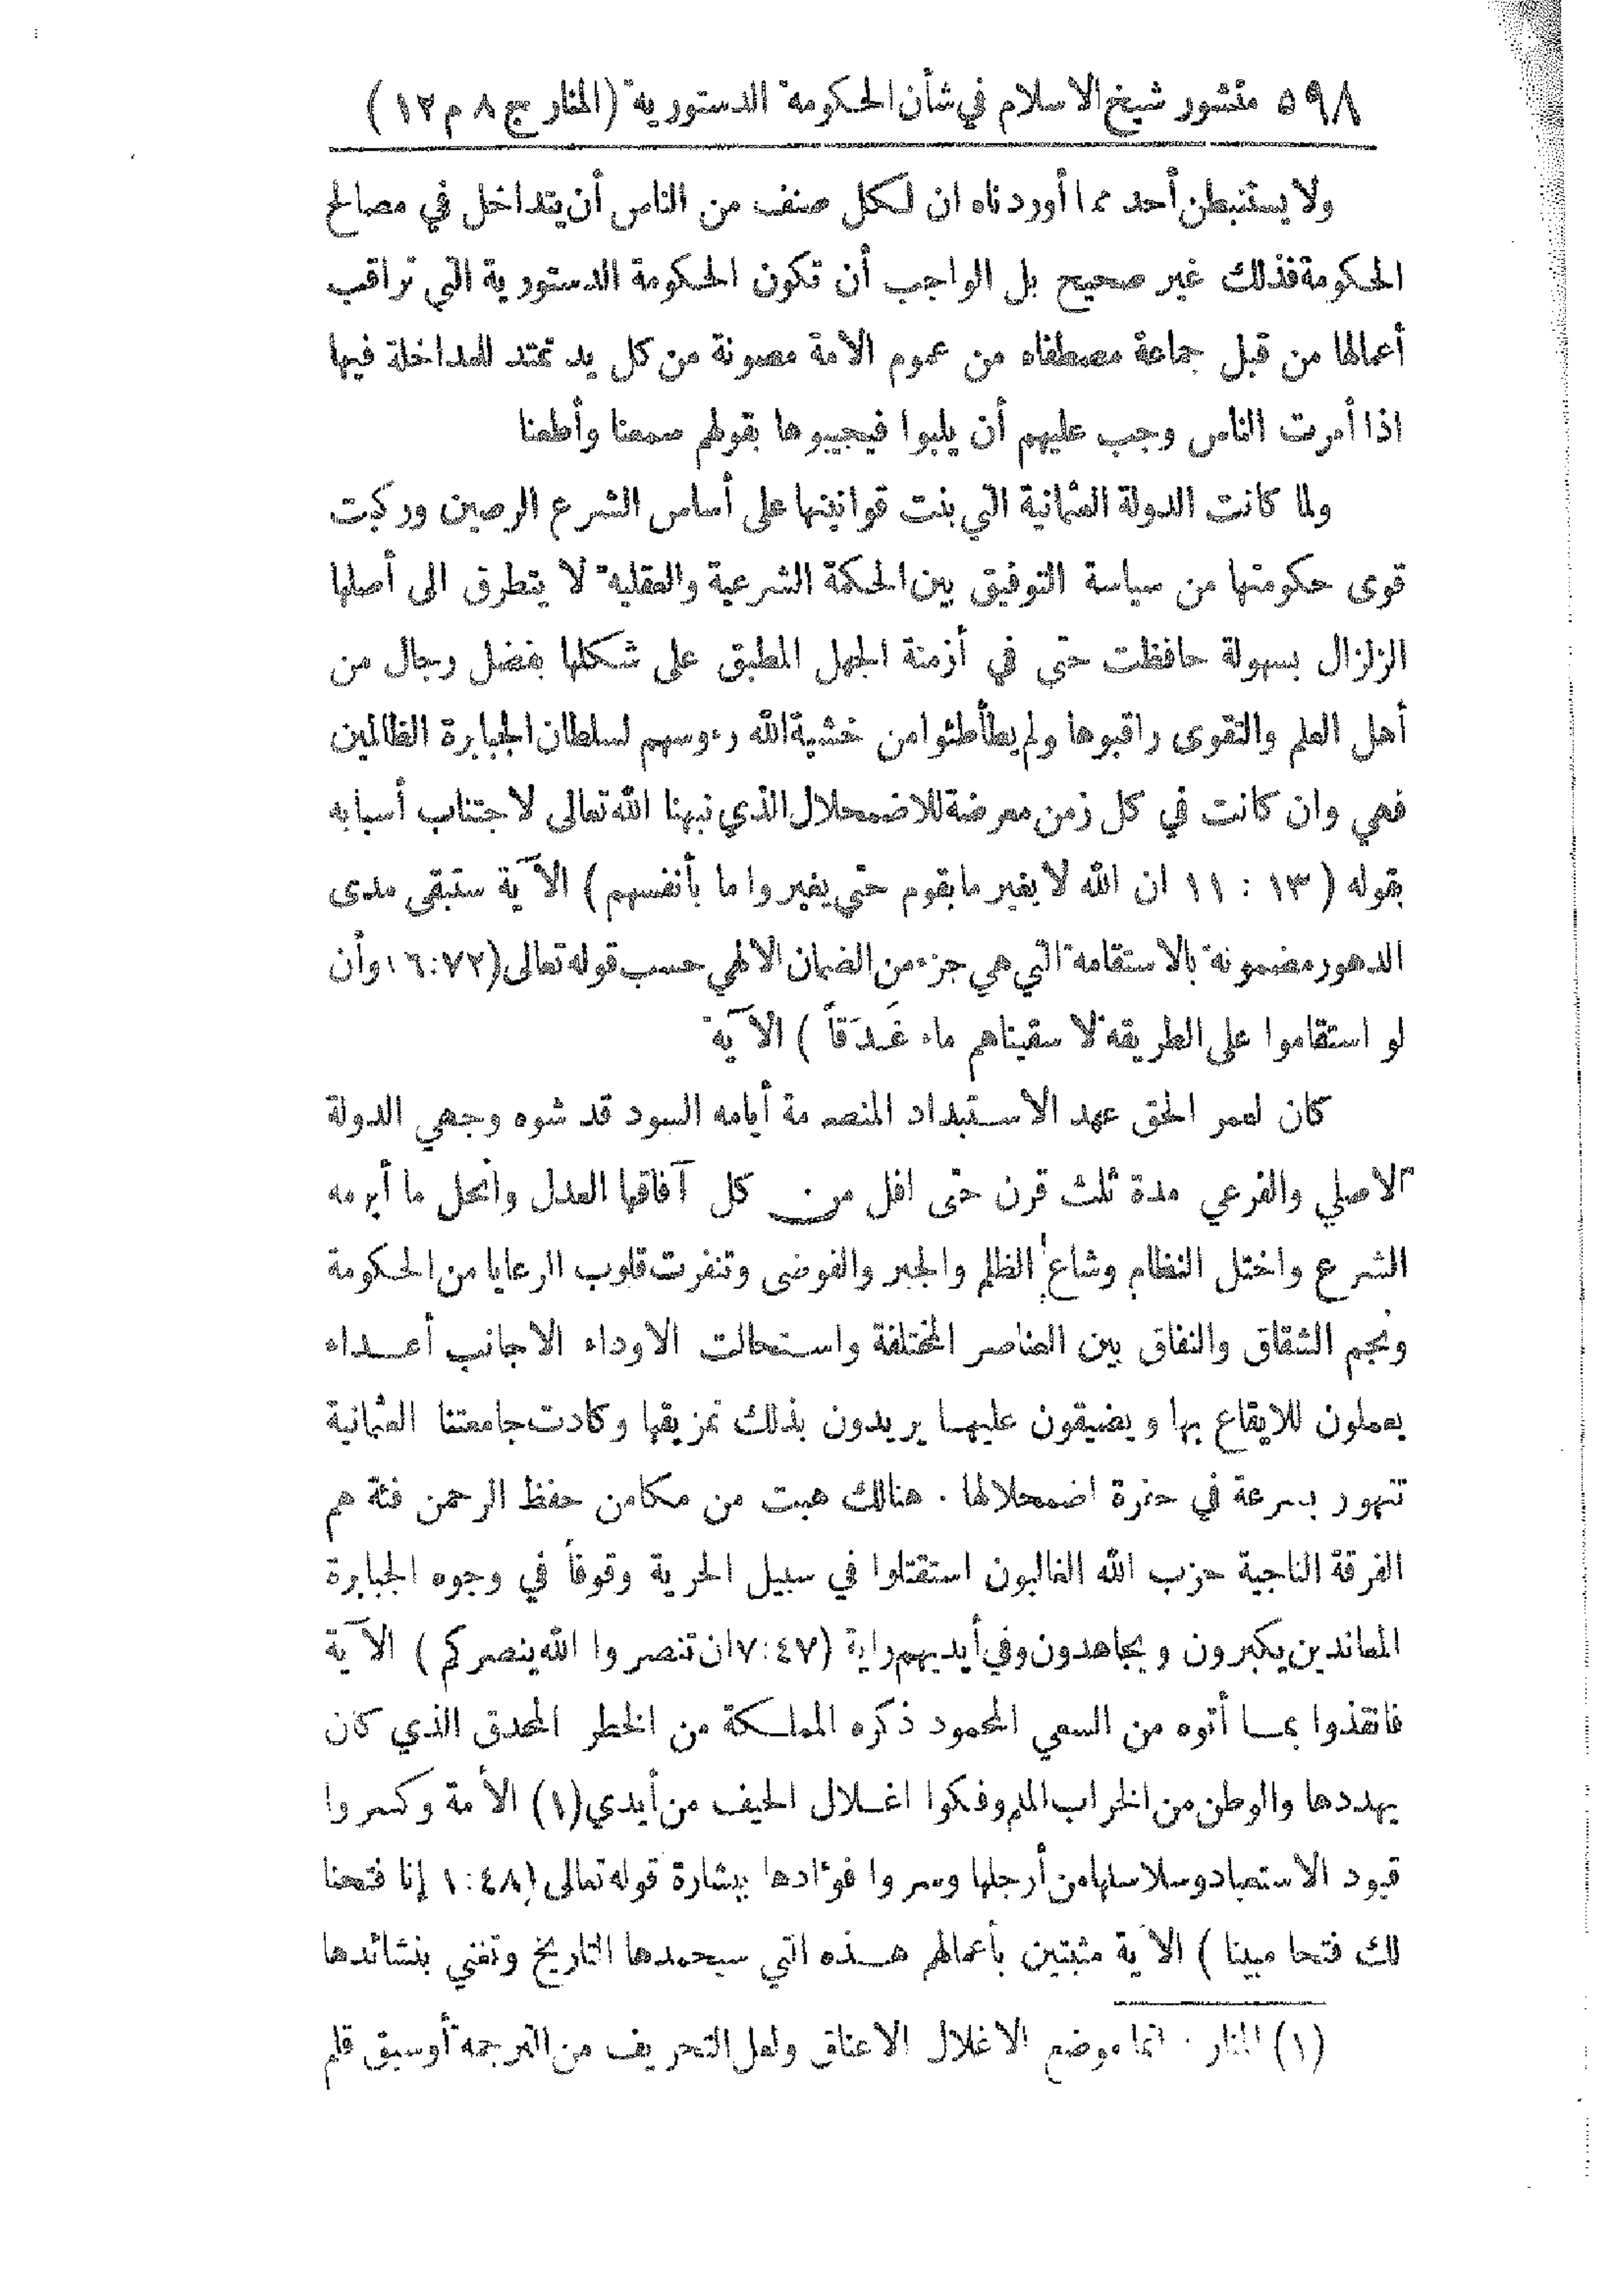 ٥٩٨ منشور شيخ الاسلام في شأن الحكومة الدستورية (المنار ج ٨ م ١٢)
ولا يستنبطن أحد مما أوردناه ان لكل صنف من الناس أن يتداخل في مصالح
الحكومة فذلك غير صحيح بل الواجب أن تكون الحكومة الدستورية التي تراقب
أعمالها من قبل جماعة مصطفاه من عموم الامة مصونة من كل يد تمتد للمداخلة فيها
اذا أمرت الناس وجب عليهم أن يلبوا فيجيبوها بقولهم سمعنا وأطعنا
ولما كانت الدولة العثمانية التي بنت قوانينها على أساس الشرع الرصين وركبت
قوى حكومتها من سياسة التوفيق بين الحكمة الشرعية والعقلية لا يتطرق الى أصلها
الزلزال بسهولة حافظت حتى في أزمنة الجهل المطبق على شكلها بفضل رجال من
أهل العلم والتقوى راقبوها ولم يطأطئوا من خشية الله رءوسهم لسلطان الجبابرة الظالمين
فهي وان كانت في كل زمن معرضة للاضمحلال الذي نبهنا الله تعالى لاجتناب أسبابه
بقوله (١٣ : ١١ ان الله لا يغير ما بقوم حتى يغيروا ما بأنفسهم) الآية ستبقى مدى
الدهور مضمونة بالاستقامة التي هي جزء من الضمان الالهي حسب قوله تعالى (٧٢:١٦ وأن
لو استقاموا على الطريقة لاسقيناهم ماء غَدَقاً) الآية
كان لعمر الحق عهد الاستبداد المنصرمة أيامه السود قد شوه وجهي الدولة
الاصلي والفرعي مدة ثلث قرن حتى افل من كل آفاقها العدل وانحل ما أبرمه
الشرع واختل النظام وشاع الظلم والجبر والفوضى وتنفرت قلوب الرعايا من الحكومة
ونجم الشقاق والنفاق بين العناصر المختلفة واستحالت الاوداء الاجانب أعداء
يعملون للايقاع بها ويضيقون عليها يريدون بذلك تمزيقها وكادت جامعتنا العثمانية
تتهور بسرعة في حفرة اضمحلالها . هنالك هبت من مكامن حفظ الرحمن فئة هم
الفرقة الناجية حزب الله الغالبون استقتلوا في سبيل الحرية وقوفاً في وجوه الجبابرة
المعاندين يكبرون ويجاهدون وفي أيديهم راية (٧:٤٧ ان تنصروا الله ينصركم) الآية
فانقذوا بما أتوه من السعي المحمود ذكره المملكة من الخطر المحدق الذي كان
يهددها والوطن من الخراب الملم وفكوا اغلال الحيف من أيدي (١) الأمة وكسروا
قيود الاستعباد وسلاسلها من أرجلها وسروا فؤادها ببشارة قوله تعالى (١:٤٨ إنا فتحنا
لك فتحا مبينا) الآية مثبتين بأعمالهم هذه التي سيحمدها التاريخ وتغني بنشائدها
(١) المنار . انما موضع الاغلال الاعناق ولعل التحريف من الترجمة أو سبق قلم